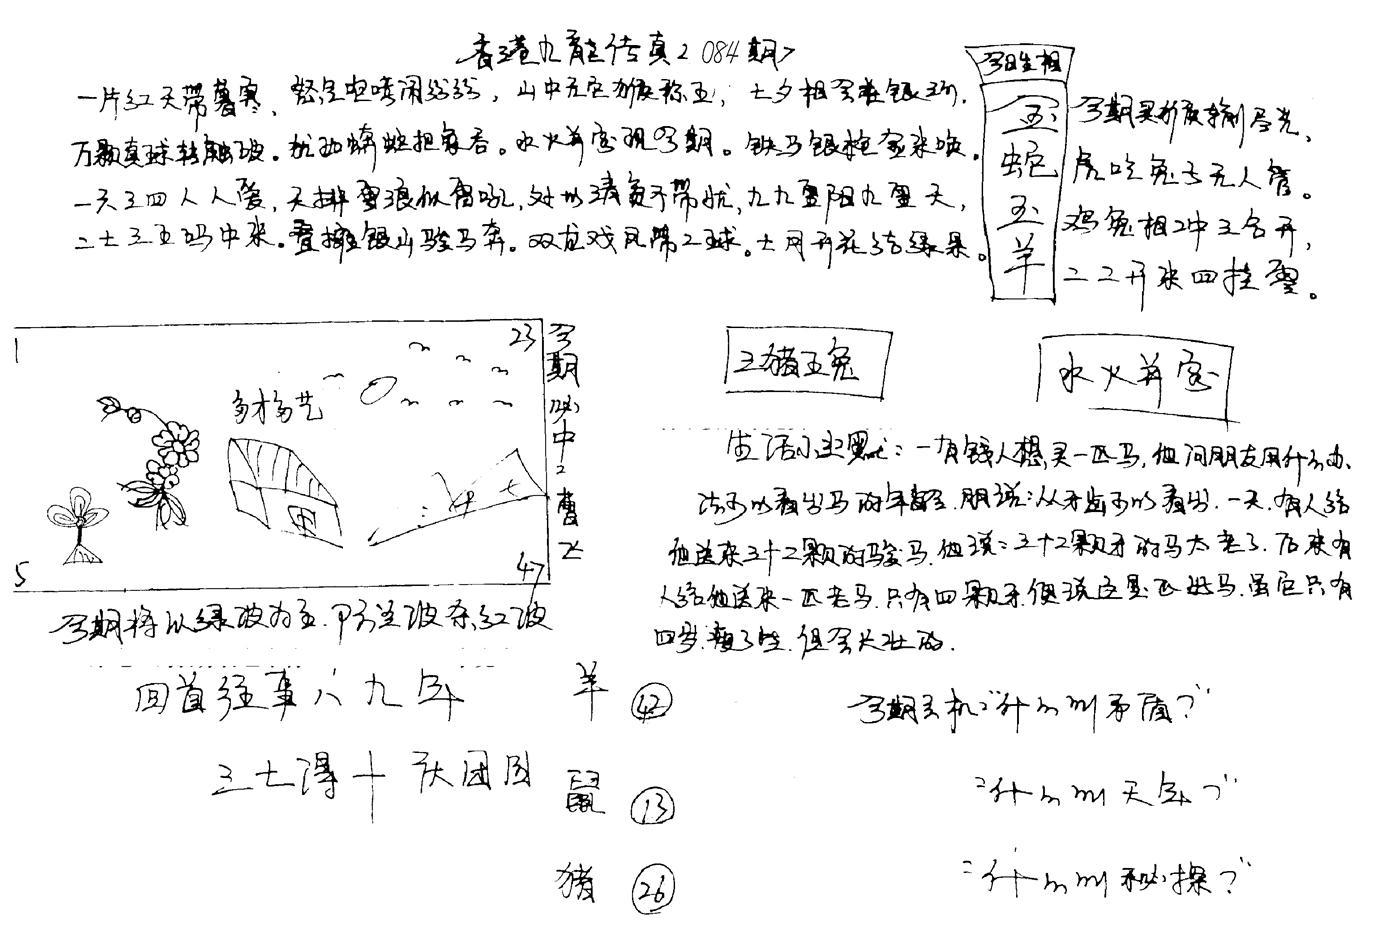 香港九龍传真2 084期
今日生相
玉
蛇
玉
羊
一片红天带暮寒, 山中无它猴称王, 七夕相会难银河,
万颗真球转触破。 把象吞。水火并宫现今期。铁马银枪金来
一天三四人人爱, 天排雪浪似雷吼, 对以清负不带忧, 九九重阳九重天,
二七三五码中来。叠拥银山骏马奔。双龙戏凤带2球。七月开花结绿果。
今期买
虎吃兔子无人管。
鸡兔相冲三合开,
二二开来四挂
1
23
多才多艺
5
47
今期必中2曹
三猪五兔
水火并宫
今期将以绿波为主. 防兰波杀红波
生活小幽默: 一有钱人想买一匹马, 他问朋友用什么办
法可以看出马的年龄. 朋说: 从牙齿可以看出. 一天. 有人给
他送来三十2颗的骏马. 他说: 三十2颗牙的马太老了. 后来有
人给他送来一匹老马. 只有四颗牙. 便说这是匹好马. 虽它只有
四岁. 瘦了些. 但会长壮的.
回首往事八九年
羊 42
三七得十庆团圆
鼠 13
猪 26
今期玄机"什么叫矛盾?"
"什么叫天年?"
"什么叫秘探?"